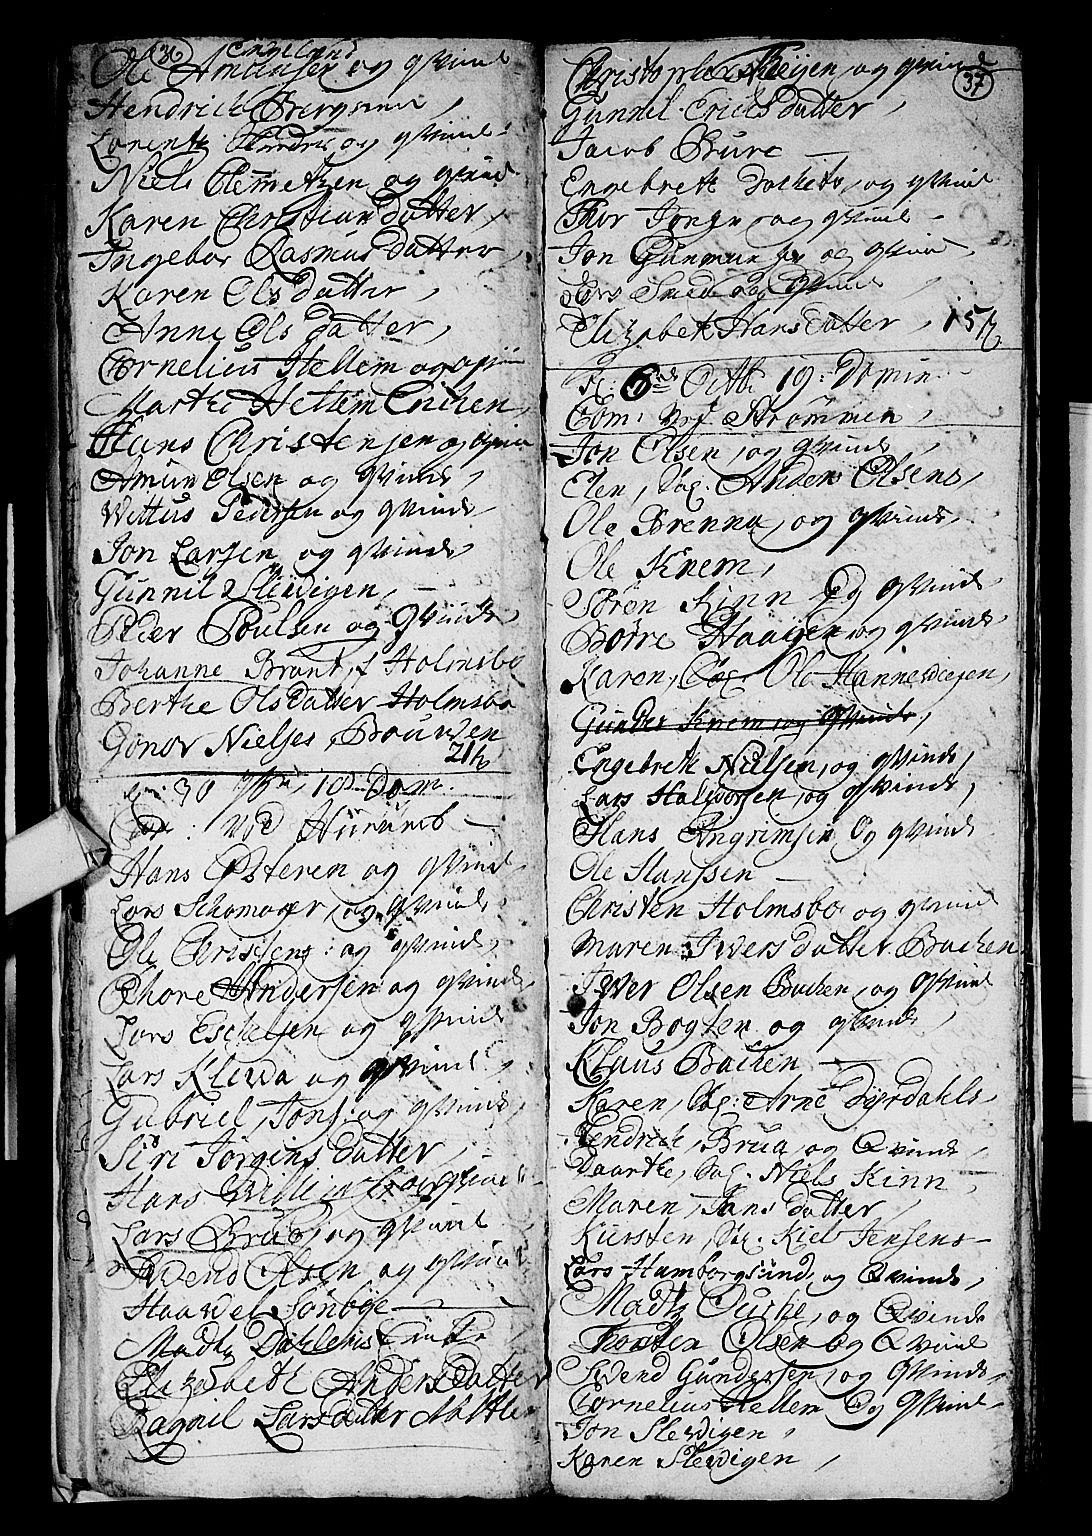 36
Engelbret
Ole Amunsen og qvind
Hendrich Bergsvend
Lorentz og qvinde
Niels Clemetzen og qvind
Karen Christiansdatter,
Ingebor Rasmusdatter,
Karen Olsdatter,
Anne Olsdatter,
Cornelius Hellem og qvin
Marthe Hellem Enchen,
Hans Christensen og qvin
Amun Olsen og qvinde,
Wittus Pedersen og qvinde,
Jon Larsen og qvinde
Gunnil Slevigen,
Peder Poulsen og qvinde
Johanne Brant, f Holmsbo
Berthe Olsdatter Holmsbo
Gonor Nielses, Bourden
21
30 7bri, 18 Dom.
Com: ved Hurumb
Hans Østeren og qvind
Lars Schomager, og qvinde
Ole Christens: og qvinde,
Thore Andersen og qvinde
Lars Eschelsen og qvinde
Lars Klevda og qvinde
Gabriel Jons: og qvinde
Siri Jørgensdatter,
Hans Willumsen og qvinde
Lars Brua, og qvinde
Svend Olsen og qvinde
Haavel Sønbye
Madtz Dahlens Encke
Elizabeth Andersdatter
Ragnil Larsdatter
37
Christopher og qvind
Gunnil Erichsdatter,
Jacob Bure
Engebreth og qvind
Thor Jonsen og qvinde
Jon Gunnun og qvind
Lars Smed og qvinde
Elizabeth Hansdatter, 15
D: 6 Octb: 19: Domin:
Com: ved Strømmen,
Jon Olsen, og qvinde,
Elen, Anders Olsens,
Ole Brenna, og qvinde,
Ole Knem,
Søren Kinn og qvinde
Børre Haaysen og qvinde
Karen, Ole Hannevigen,
Gunder Knem og qvinde,
Engebreth Nielsen, og qvinde,
Lars Halvorsen, og qvinde,
Hans Angrimsen og qvinde
Ole Hanssen
Christen Holmsbo og qvind
Maren Iversdatter Bachen
Iver Olsen Bachen, og qvind
Jon Bogten og qvinde,
Klaus Bachen
Karen, Arne Dyrdahls
Hendrich Brua, og Qvinde
Daarthe, Niels Kinn,
Maren Jansdatter,
Kiersten, Kield Jensens
Lars Hamborgsund, og Qvinde,
Madtz Ouche, og Qvinde
Thorsten Olsen og Qvind
Svend Gundersen, og qvinde,
Cornelius Hellem og qvind
Jon Slevigen,
Karen Slevigen,